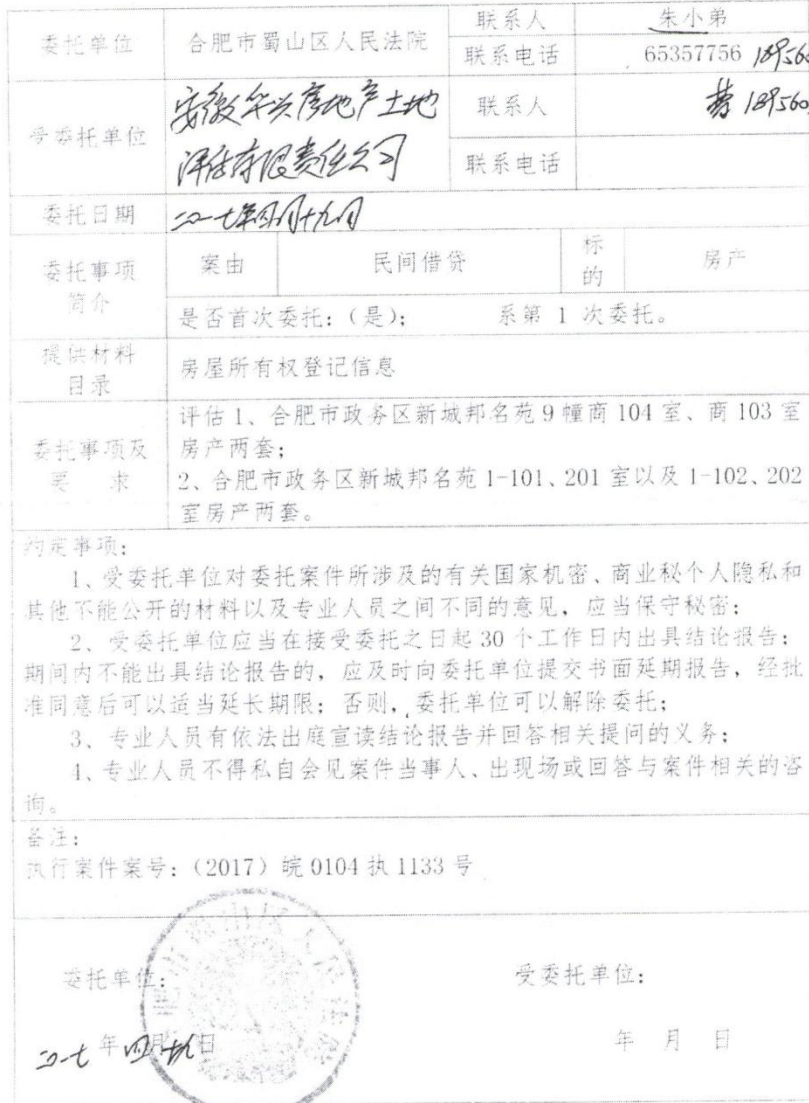 委托单位 合肥市蜀山区人民法院 联系人 朱小弟
联系电话 65357756 189560
受委托单位 安徽华兴房地产土地 联系人 189560
评估有限责任公司 联系电话
委托日期 二〇一七年四月十九日
委托事项 案由 民间借贷 标的 房产
简介 是否首次委托:(是); 系第 1 次委托。
提供材料
目录 房屋所有权登记信息
评估 1、合肥市政务区新城邦名苑 9 幢商 104 室、商 103 室
委托事项及 房产两套;
要 求 2、合肥市政务区新城邦名苑 1-101、201 室以及 1-102、202
室房产两套。
约定事项:
1、受委托单位对委托案件所涉及的有关国家机密、商业秘个人隐私和
其他不能公开的材料以及专业人员之间不同的意见,应当保守秘密;
2、受委托单位应当在接受委托之日起 30 个工作日内出具结论报告;
期间内不能出具结论报告的,应及时向委托单位提交书面延期报告,经批
准同意后可以适当延长期限;否则,委托单位可以解除委托;
3、专业人员有依法出庭宣读结论报告并回答相关提问的义务;
4、专业人员不得私自会见案件当事人、出现场或回答与案件相关的咨
询。
备注:
执行案件案号:(2017)皖 0104 执 1133 号
委托单位: 受委托单位:
二〇一七 年 四 月 十九 日 年 月 日